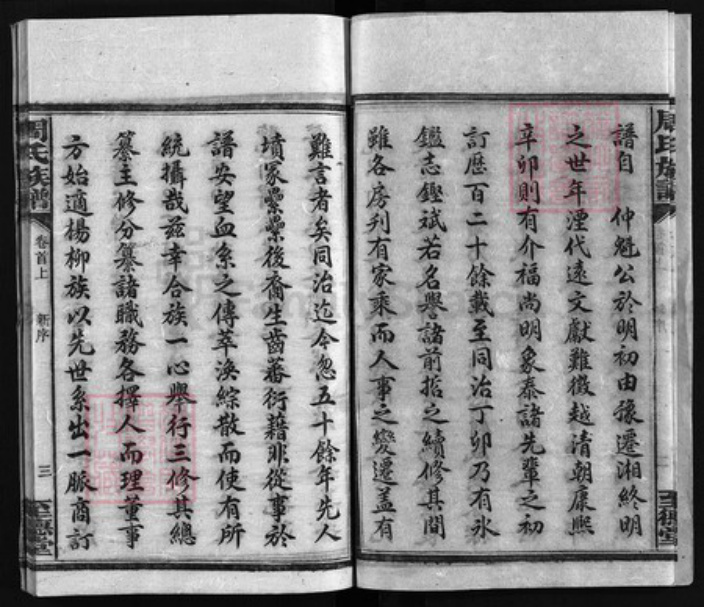 譜自 仲魁公於明初由豫遷湘終明
之世年湮代遠文獻難徵越清朝康熙
辛卯則有介福尚明象泰諸先輩之初
訂歷百二十餘載至同治丁卯乃有冰
鑑志鏗斌若名譽諸前哲之續修其間
雖各房刋有家乘而人事之變遷盖有
難言者矣同治迄今忽五十餘年先人
墳冢纍纍後裔生齒蕃衍藉非從事於
譜安望血系之傳萃渙綜散而使有所
統攝哉兹幸合族一心舉行三修其總
纂主修分纂諸職務各擇人而理董事
方始適楊柳族以先世系出一脈商訂
周氏族譜
卷首上
新序
三